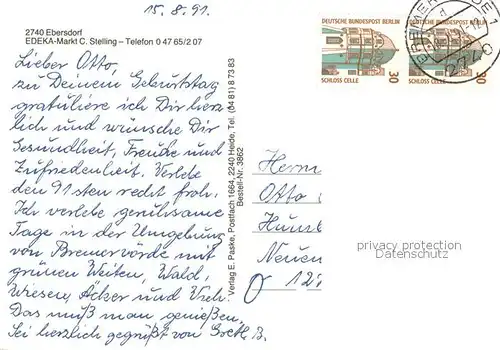 15.8.91.
2740 Ebersdorf
EDEKA-Markt C. Stelling – Telefon 0 47 65/2 07
Lieber Otto,
zu Deinem Geburtstag
gratuliere ich Dir herz
lich und wünsche Dir
Gesundheit, Freude und
Zufriedenheit. Verlebe
den 91sten recht froh.
Ich verlebe geruhsame
Tage in der Umgebung
von Bremervörde mit
grünen Weiten, Wald,
Wiesen, Äcker und Vieh.
Das muß man genießen.
Sei herzlich gegrüßt von Greth B.
Verlag E. Paske, Postfach 1664, 2240 Heide, Tel. (04 81) 8 73 83
Bestell-Nr. 3862
DEUTSCHE BUNDESPOST BERLIN
30
SCHLOSS CELLE
DEUTSCHE BUNDESPOST BERLIN
30
SCHLOSS CELLE
2740
Herrn
Otto
Neuen
privacy protection
Datenschutz